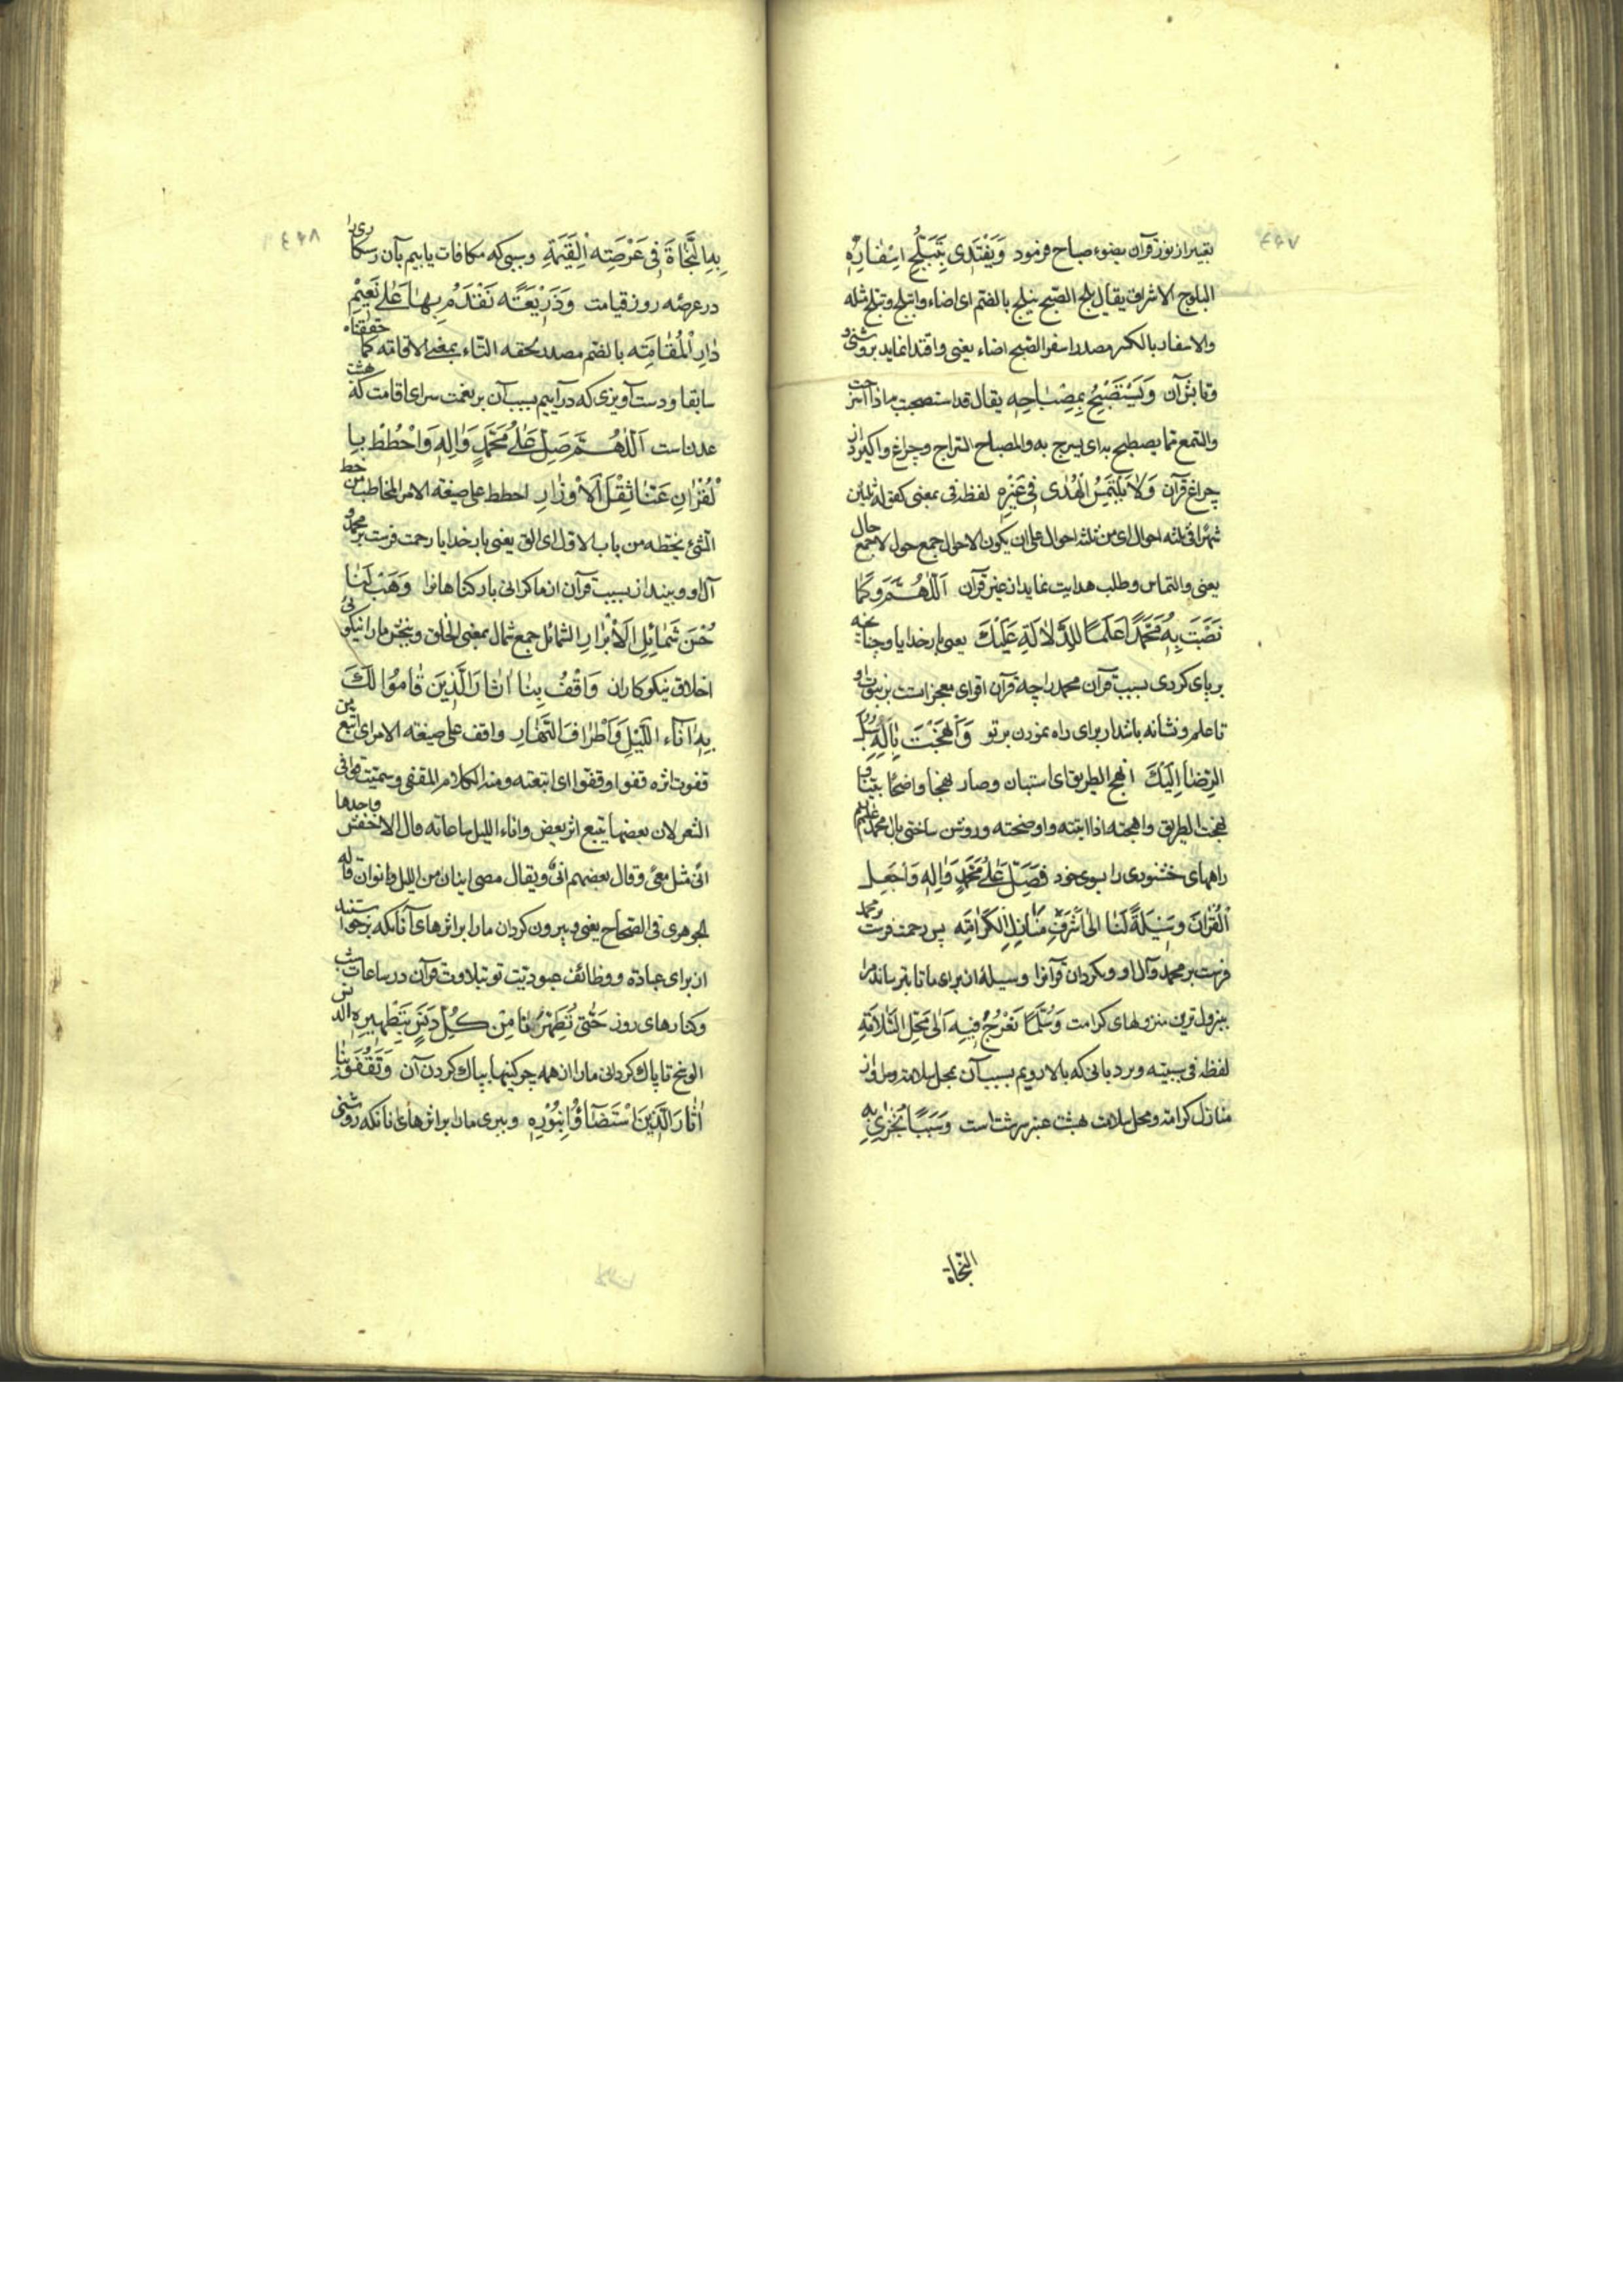 ٤٤٧
تعبیر از نور قرآن بضوء صباح فرمود وَيَقْتَدِى بِتَبَلُّجِ اِسْفٰارِهِ
البلوج الاشراق یقال بلج الصّبح یبلج بالضم ای اضاء وانبلج وتبلج مثله
والاسفار بالکسر مصدر اسفر الصّبح اضاء یعنی واقتدا نماید بروشنی و
قرآن وَيَسْتَصْبِحُ بِمِصْبٰاحِهِ یقال قد استصبحت
والشمع مما یصطبح به ای یسرج به والمصباح السّراج وچراغ واکیرد از
چراغ قرآن وَلاٰ يَلْتَمِسُ الْهُدٰى فِى غَيْرِهِ لفظه فی بمعنی کقوله ثلثین
شهرا فی ثلثه احوال ای من ثلثه احوال علی ان یکون الاحوال جمع حول لا جمع حال
یعنی والتماس وطلب هدایت نماید از غیر قرآن اَللّٰهُمَّ وَكَمٰا
نَصَبْتَ بِهِ مُحَمَّدًا عَلَمًا لِلدَّلاٰلَةِ عَلَيْكَ یعنی بارخدایا وچنانچه
برپای کردی بسبب قرآن محمد را چه قرآن اقوای معجزاتست بر نبوت او
تا علم ونشانه باشد از برای راه نمودن بر تو وَاَنْهَجْتَ بِاٰلِهِ سُبُلَ
الرِّضٰا اِلَيْكَ انهج الطریق ای استبان وصار نهجا واضحًا بینًا و
نهجت الطریق وانهجته اذا ابنته واوضحته وروشن ساختی بآل محمد علیهم
راههای خشنودی را بسوی خود فَصَلِّ عَلٰى مُحَمَّدٍ وَاٰلِهِ وَاجْعَلِ
الْقُرْاٰنَ وَسِيلَةً لَنٰا اِلىٰ اَشْرَفِ مَنٰازِلِ الْكَرٰامَةِ پس رحمت فرست بر محمد
فرست بر محمد وآل او وبکردان قرآنرا وسیله از برای ما تا برساند ما را
ترین منزلهای کرامت وَسُلَّمًا نَعْرُجُ فِيهِ اِلىٰ مَحَلِّ السَّلاٰمَةِ
لفظه فی سببیته ونردبانی که بالا رویم بسبب آن بمحل سلامت ومراد از
منازل کرامة ومحل سلامت هشت عنبر سرشت است وَسَبَبًا نُجْزٰى بِهِ
النّجاة
٤٤٨
بِهِ النَّجٰاةَ فِى عَرْصَتِه الْقِيٰمَةِ وسببی که مکافات یابیم بآن رستکاری را
در عرصه روز قیامت وَذَرِيعَتًه نَقْدَمُ بِهٰا عَلٰى نَعِيْمِ
دٰارِ الْمُقٰامَتِه بالضم مصدر لحقه التاء بمعنی الاقامته کما حققناه
سابقا ودست آویزی که درآییم بسبب آن بر نعمت سرای اقامت که بهشت
عدنست اَللّٰهُمَّ صَلِّ عَلٰى مُحَمَّدٍ وَاٰلِهِ وَاحْطُطْ بِا
لْقُرْاٰنِ عَنّٰا ثِقْلَ الْاَوْزٰارِ احطط علی صیغته الامر المخاطب من حط
الشئ یحطه من باب الاول ای القی یعنی بارخدایا رحمت فرست بر محمد و
آل او وبینداز بسبب قرآن از ما کرانی بار کناهانرا وَهَبْ لَنٰا
حُسْنَ شَمٰائِلِ الْاَبْرٰارِ الشمائل جمع شمال بمعنی الخلق وببخش ما را نیکوئی
اخلاق نیکوکاران وَاقْفُ بِنٰا اٰثٰارَ الَّذِينَ قٰامُوا لَكَ
بِهِ اٰنٰاءَ اللَّيْلِ وَاَطْرٰافَ النَّهٰارِ واقف علی صیغته الامر ای اتبع من
قفوت اثره قفوا وقفوّا ای اتبعته ومنه الکلام المقفی وسمیت قوافی
الشعر لان بعضها یتبع اثر بعض واناء اللیل ساعاته قال الاخفش واحدها
انی مثل معی وقال بعضهم انی ویقال مضی انیان من اللیل وانوان قاله
الجوهری فی الصّحاح یعنی وبیرون کردان ما را بر اثرهای آنانکه برخواستند
از برای عبادة ووظائف عبودیّت تو بتلاوت قرآن در ساعات شب
وکنارهای روز حَتّٰى تُطَهِّرَنٰا مِنْ كُلِّ دَنَسٍ بِتَطْهِيرِهِ الدنس
الوسخ تا پاک کردانی ما را از همه چرکینها بپاک کردن آن وَتَقْفُوَ بِنٰا
اٰثٰارَ الَّذِينَ اسْتَضٰآؤُا بِنُوْرِهِ وببری ما را بر اثرهای آنانکه روشنی